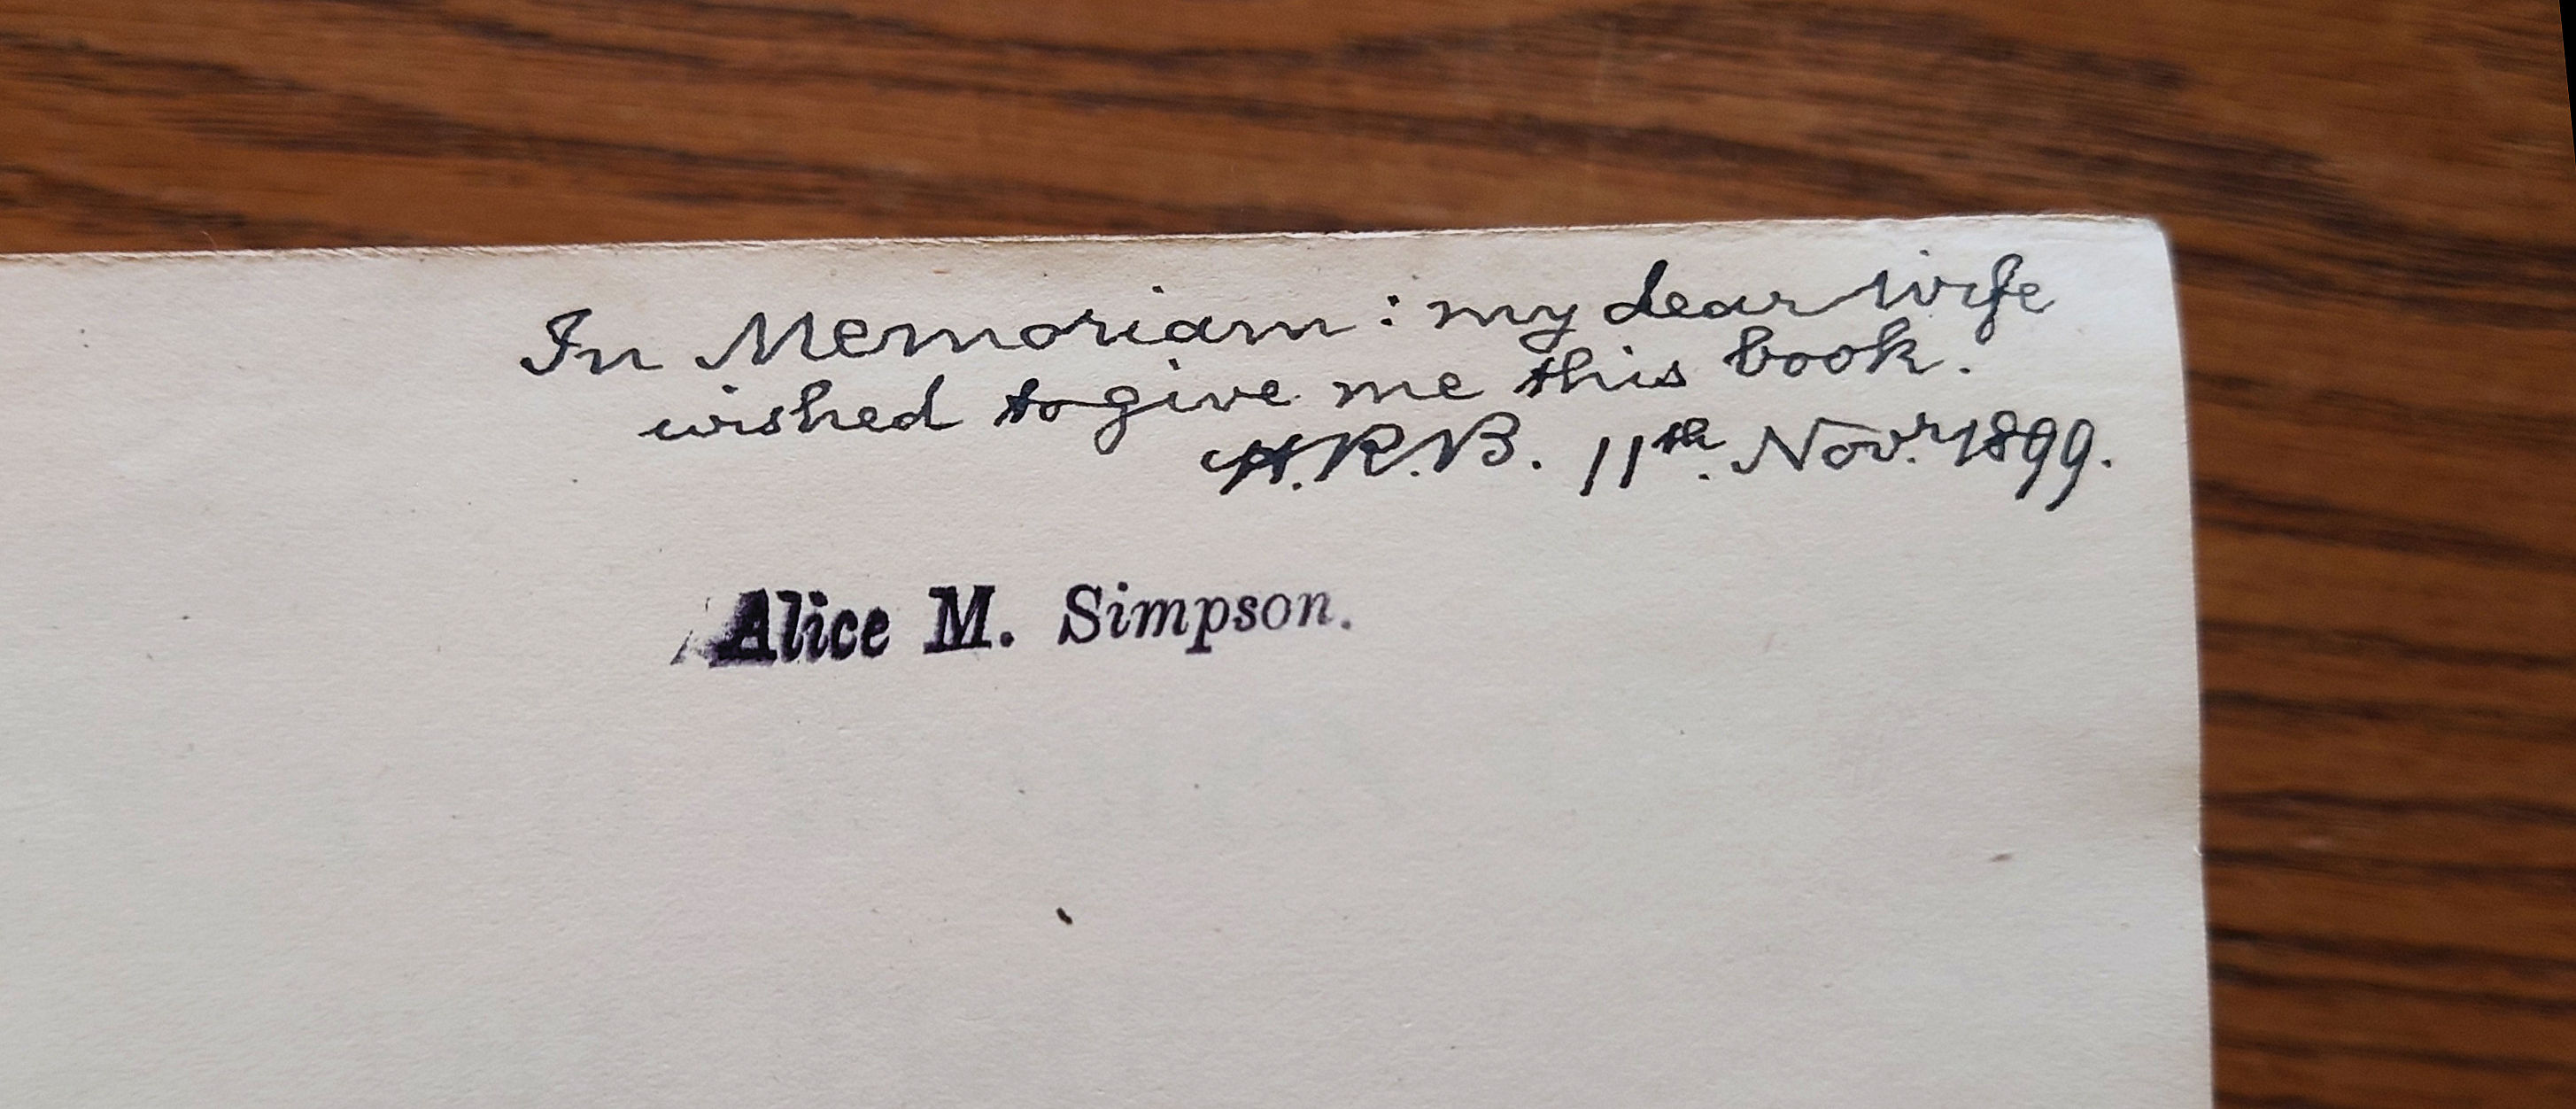 In Memoriam : my dear Wife
wished to give me this book.
H.R.B. 11th. Novr. 1899.
Alice M. Simpson.